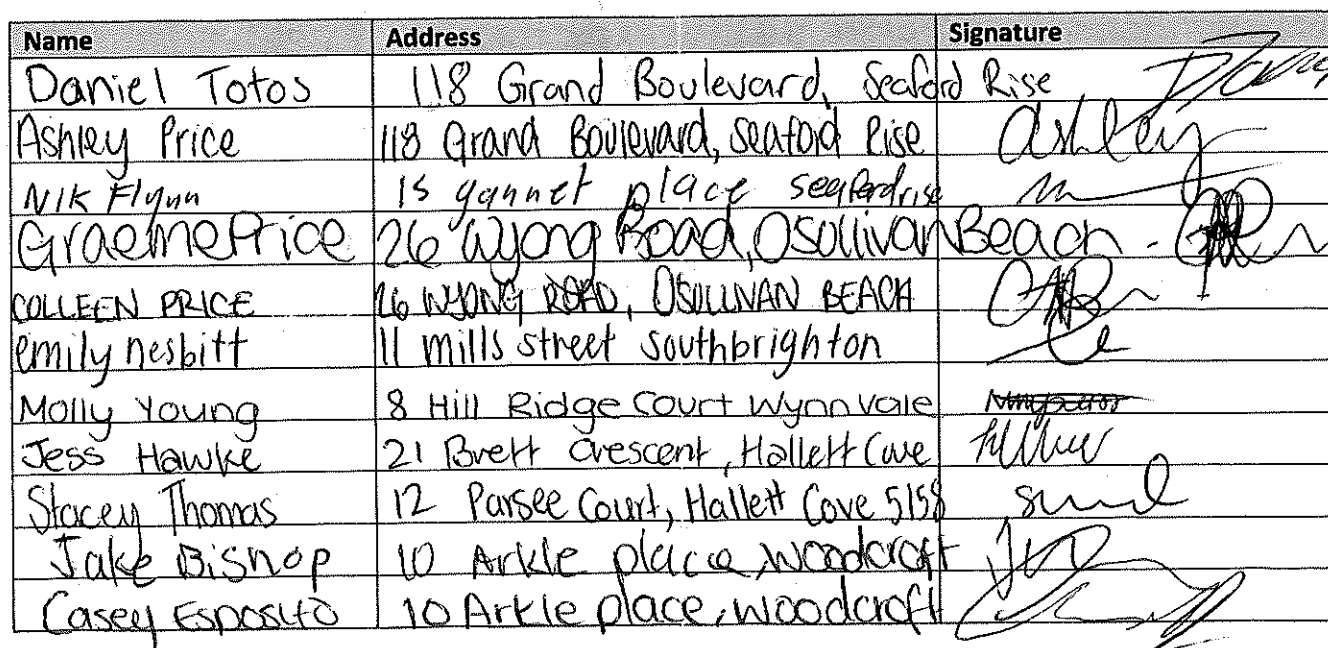 Name Address Signature
Daniel Totos 118 Grand Boulevard, Seaford Rise
Ashley Price 118 Grand Boulevard, Seaford Rise Ashley
Nik Flynn 15 gannet place seaford rise
Graeme Price 26 Wyong Road, Osullivan Beach -
COLLEEN PRICE 26 WYONG ROAD, OSULLIVAN BEACH
emily nesbitt 11 mills street southbrighton
Molly Young 8 Hill Ridge Court Wynn Vale
Jess Hawke 21 Brett Crescent, Hallett Cove
Stacey Thomas 12 Parsee Court, Hallett Cove 5158
Jake Bishop 10 Arkle place, woodcroft
Casey Esposito 10 Arkle place, woodcroft